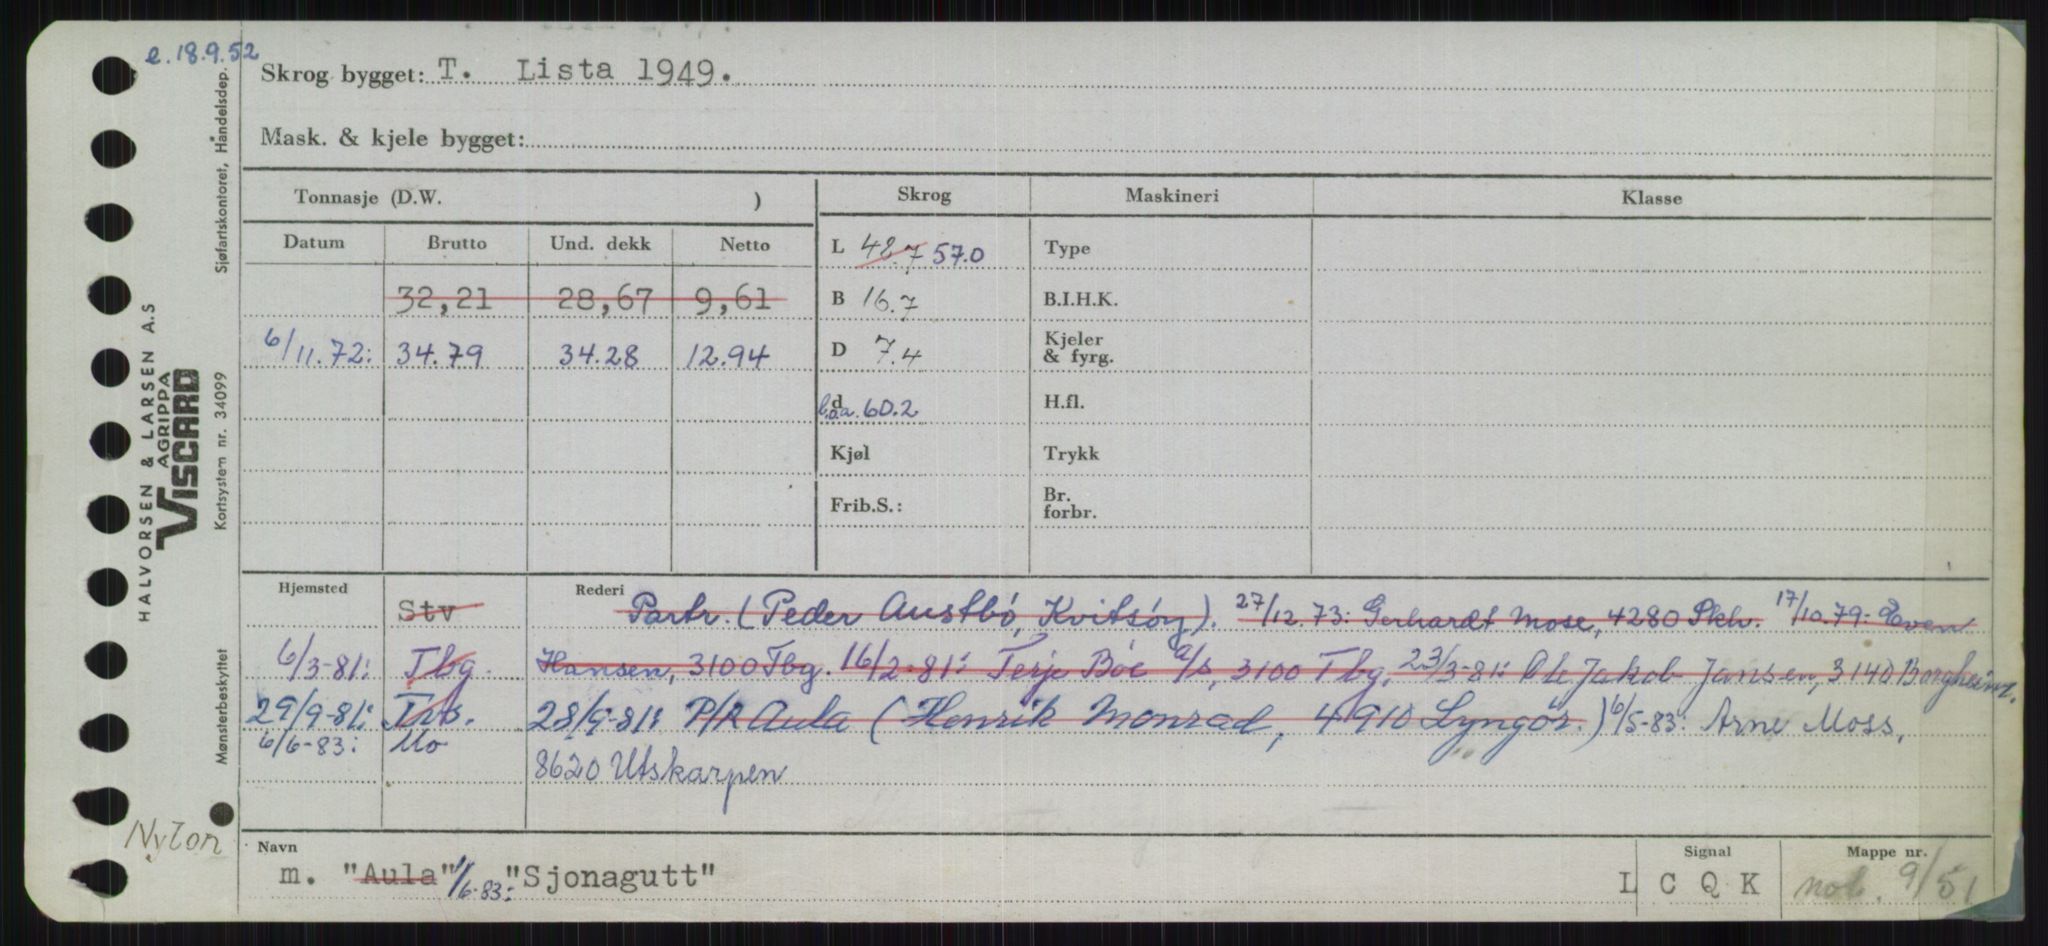 e. 18.9.52
Skrog bygget: T. Lista 1949.
Mask. & kjele bygget:
Tonnasje (D.W. )
Skrog
Maskineri
Klasse
Datum
Brutto
Und. dekk
Netto
L 48.7 57.0
Type
32,21 28,67 9,61
B 16.7
B.I.H.K.
6/11.72: 34.79 34.28 12.94
D 7.4
Kjeler
& fyrg.
d
l.o.a. 60.2
H.fl.
Kjøl
Trykk
Frib.S.:
Br.
forbr.
Hjemsted
Stv
Rederi
Partr. (Peder Austbö, Kvitsöy). 27/12.73: Gerhardt Mose, 4280 Skh. 17/10.79: Even
6/3-81: Tbg. Hansen, 3100 Tbg. 16/2-81: Terje Böe a/s, 3100 Tbg. 23/3-81: Ole Jakob Jansen, 3140 Borgheim.
29/9-81: Tvs. 28/9-81: P/R Aula (Henrik Monrad, 4910 Lyngör.) 6/5-83: Arne Moss,
6/6-83: Mo
8620 Utskarpen
Navn
m. "Aula" 1/6-83: "Sjonagutt"
Signal
L C Q K
Mappe nr.
not. 9/51
Nylon
HALVORSEN & LARSEN A.S
AGRIPPA
VISCARD
Sjøfartskontoret, Håndelsdep.
Kortsystem nr. 34099
Mønsterbeskyttet